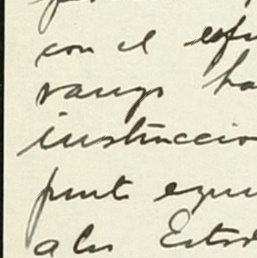 con el esfu
rango ha
instruccio
punto equi
a los Estad